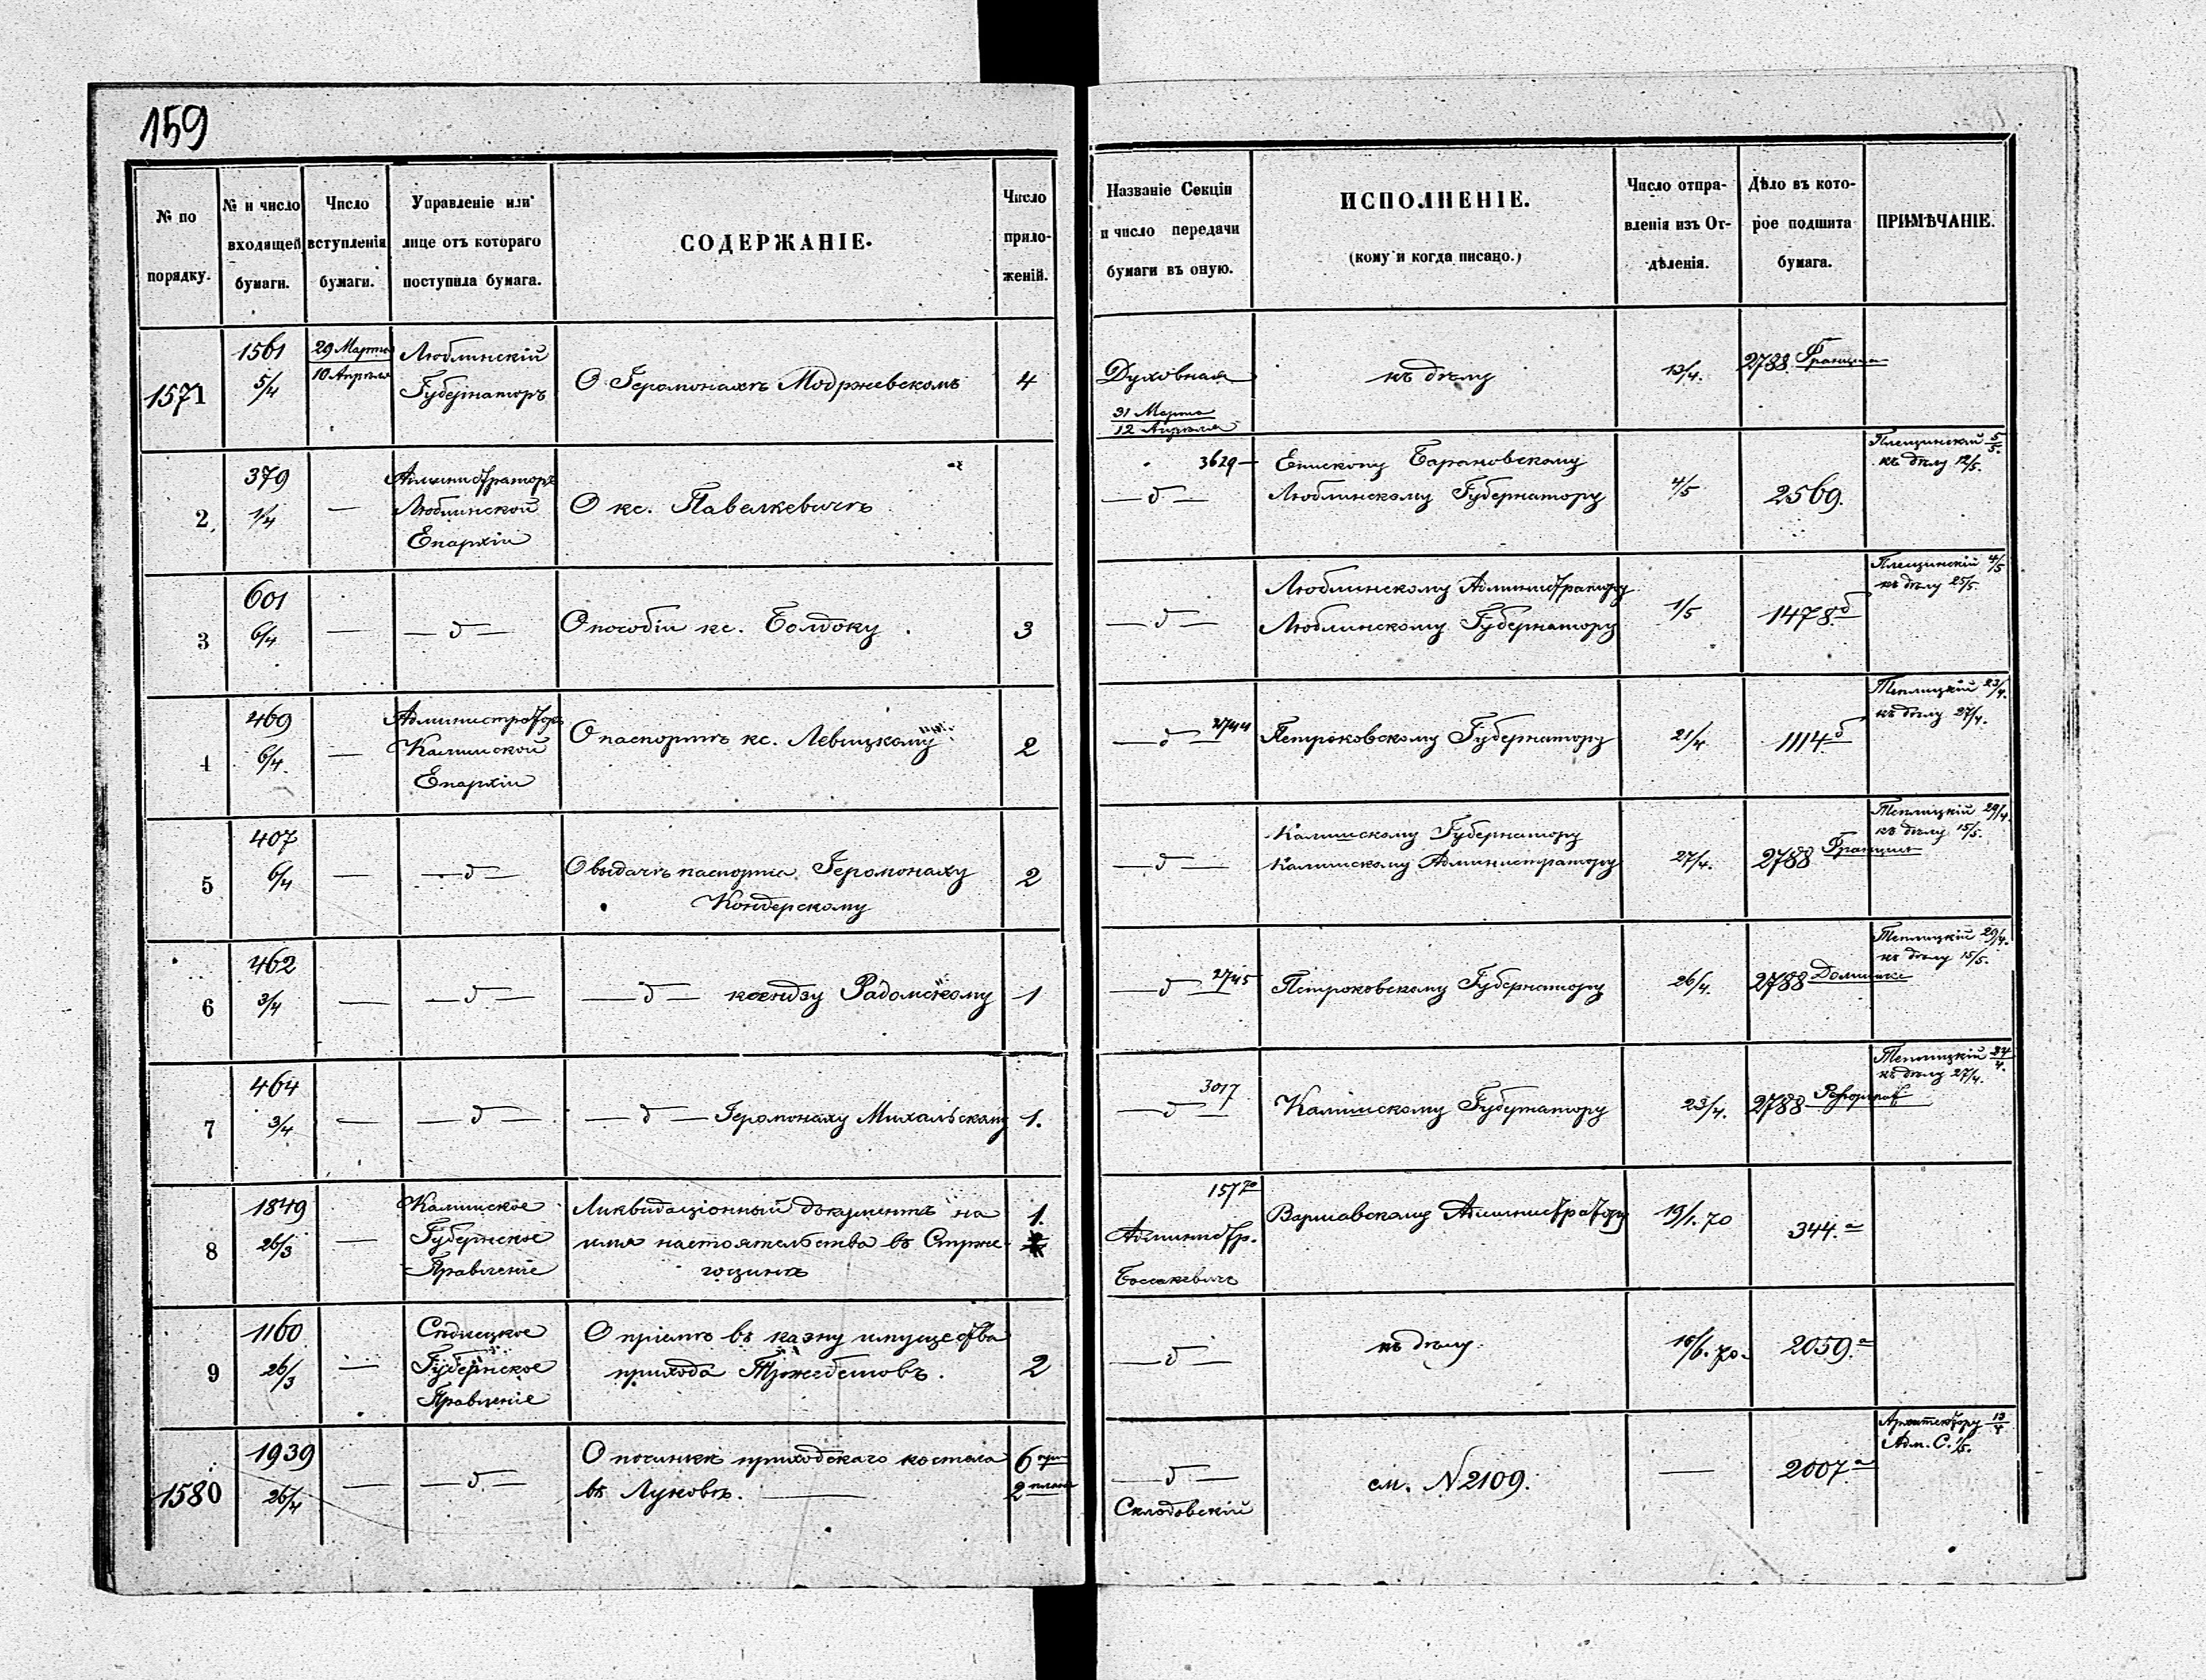 159
№ по порядку.
№ и число входящей бумаги.
Число вступленія бумаги.
Управленіе или лице отъ котораго поступила бумага.
СОДЕРЖАНІЕ.
Число приложеній.
Названіе Секціи и число передачи бумаги въ оную.
ИСПОЛНЕНІЕ.
(кому и когда писано.)
Число отправленія изъ Отдѣленія.
Дѣло въ которое подшита бумага.
ПРИМѢЧАНІЕ.
1571
1561
5/4
29 Марта
10 Апрѣля
Люблинскій
Губернаторъ
О Іеромонахѣ Модржевскомъ
4
Духовная
31 Марта
12 Апрѣля
къ дѣлу
13/4.
2788 Францишк
2
379
1/4
—
Администраторъ
Люблинской
Епархіи
О кс. Павелкевичѣ
3629 —
— д —
Епископу Барановскому
Люблинскому Губернатору
4/5
2569.
Плещинскій 5/5.
къ дѣлу 12/5.
3
601
6/4
—
— д —
О пособіи кс. Болдоку
3
— д —
Люблинскому Администратору
Люблинскому Губернатору
1/5
1478 б
Плещинскій 4/5
къ дѣлу 25/5.
4
469
6/4.
—
Администраторъ
Калишской
Епархіи
О паспортѣ кс. Левицкому
2
— д — 2744
Петроковскому Губернатору
21/4
1114 б
Теплицкій 23/4.
къ дѣлу 27/4.
5
407
6/4
—
— д —
О выдачѣ паспорта Іеромонаху
Кондерскому
2
— д —
Калишскому Губернатору
Калишскому Администратору
27/4.
2788 Францишк
Теплицкій 29/4
къ дѣлу 15/5.
6
462
3/4
—
— д —
— д — ксендзу Радомскому
1
— д — 2745
Петроковскому Губернатору
26/4.
2788 Доминик
Теплицкій 29/4.
къ дѣлу 15/5.
7
464
3/4
—
— д —
— д — Іеромонаху Михальскому
1.
3017
— д —
Калишскому Губернатору
23/4.
2788 Реформат
Теплицкій 24/4.
къ дѣлу 27/4.
8
1849
26/3
—
Калишское
Губернское
Правленіе
Ликвидаціонный документъ на
имя настоятельства въ Стрже-
гоцинѣ
1.
1577º
Администр.
Боссакевичъ
Варшавскому Администратору
19/1. 70
344. а
9
1160
26/3
—
Сѣдлецкое
Губернское
Правленіе
О пріемѣ въ казну имущества
прихода Тржебешовъ.
2
— д —
къ дѣлу
16/6. 70.
2059. а
1580
1939
26/4
—
— д —
О починкѣ приходскаго костела
въ Луковѣ. —
6 при
2 плана
— д —
Склодовскій
см. N 2109.
—
2007 а
Архитектору 13/4
Адм. С. 1/5.